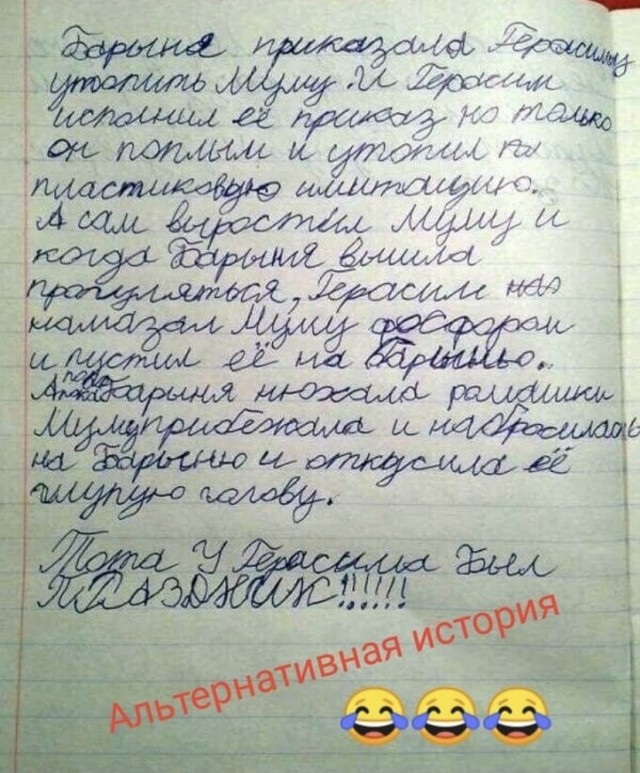 Барыня приказала Герасиму
утопить Муму. И Герасим
исполнил её приказ но только
он поплыл и утопил
пластиковую имитацию.
А сам выростил Муму и
когда Барыня вышла
прогуляться, Герасим
намазал Муму фосфором
и пустил её на Барыню.
А пока Барыня нюхала ромашки
Муму прибежала и набросилась
на Барыню и откусила её
глупую голову.
Тота У Герасима Был
ПРАЗДНИК!!!!!!
Альтернативная история
😂😂😂